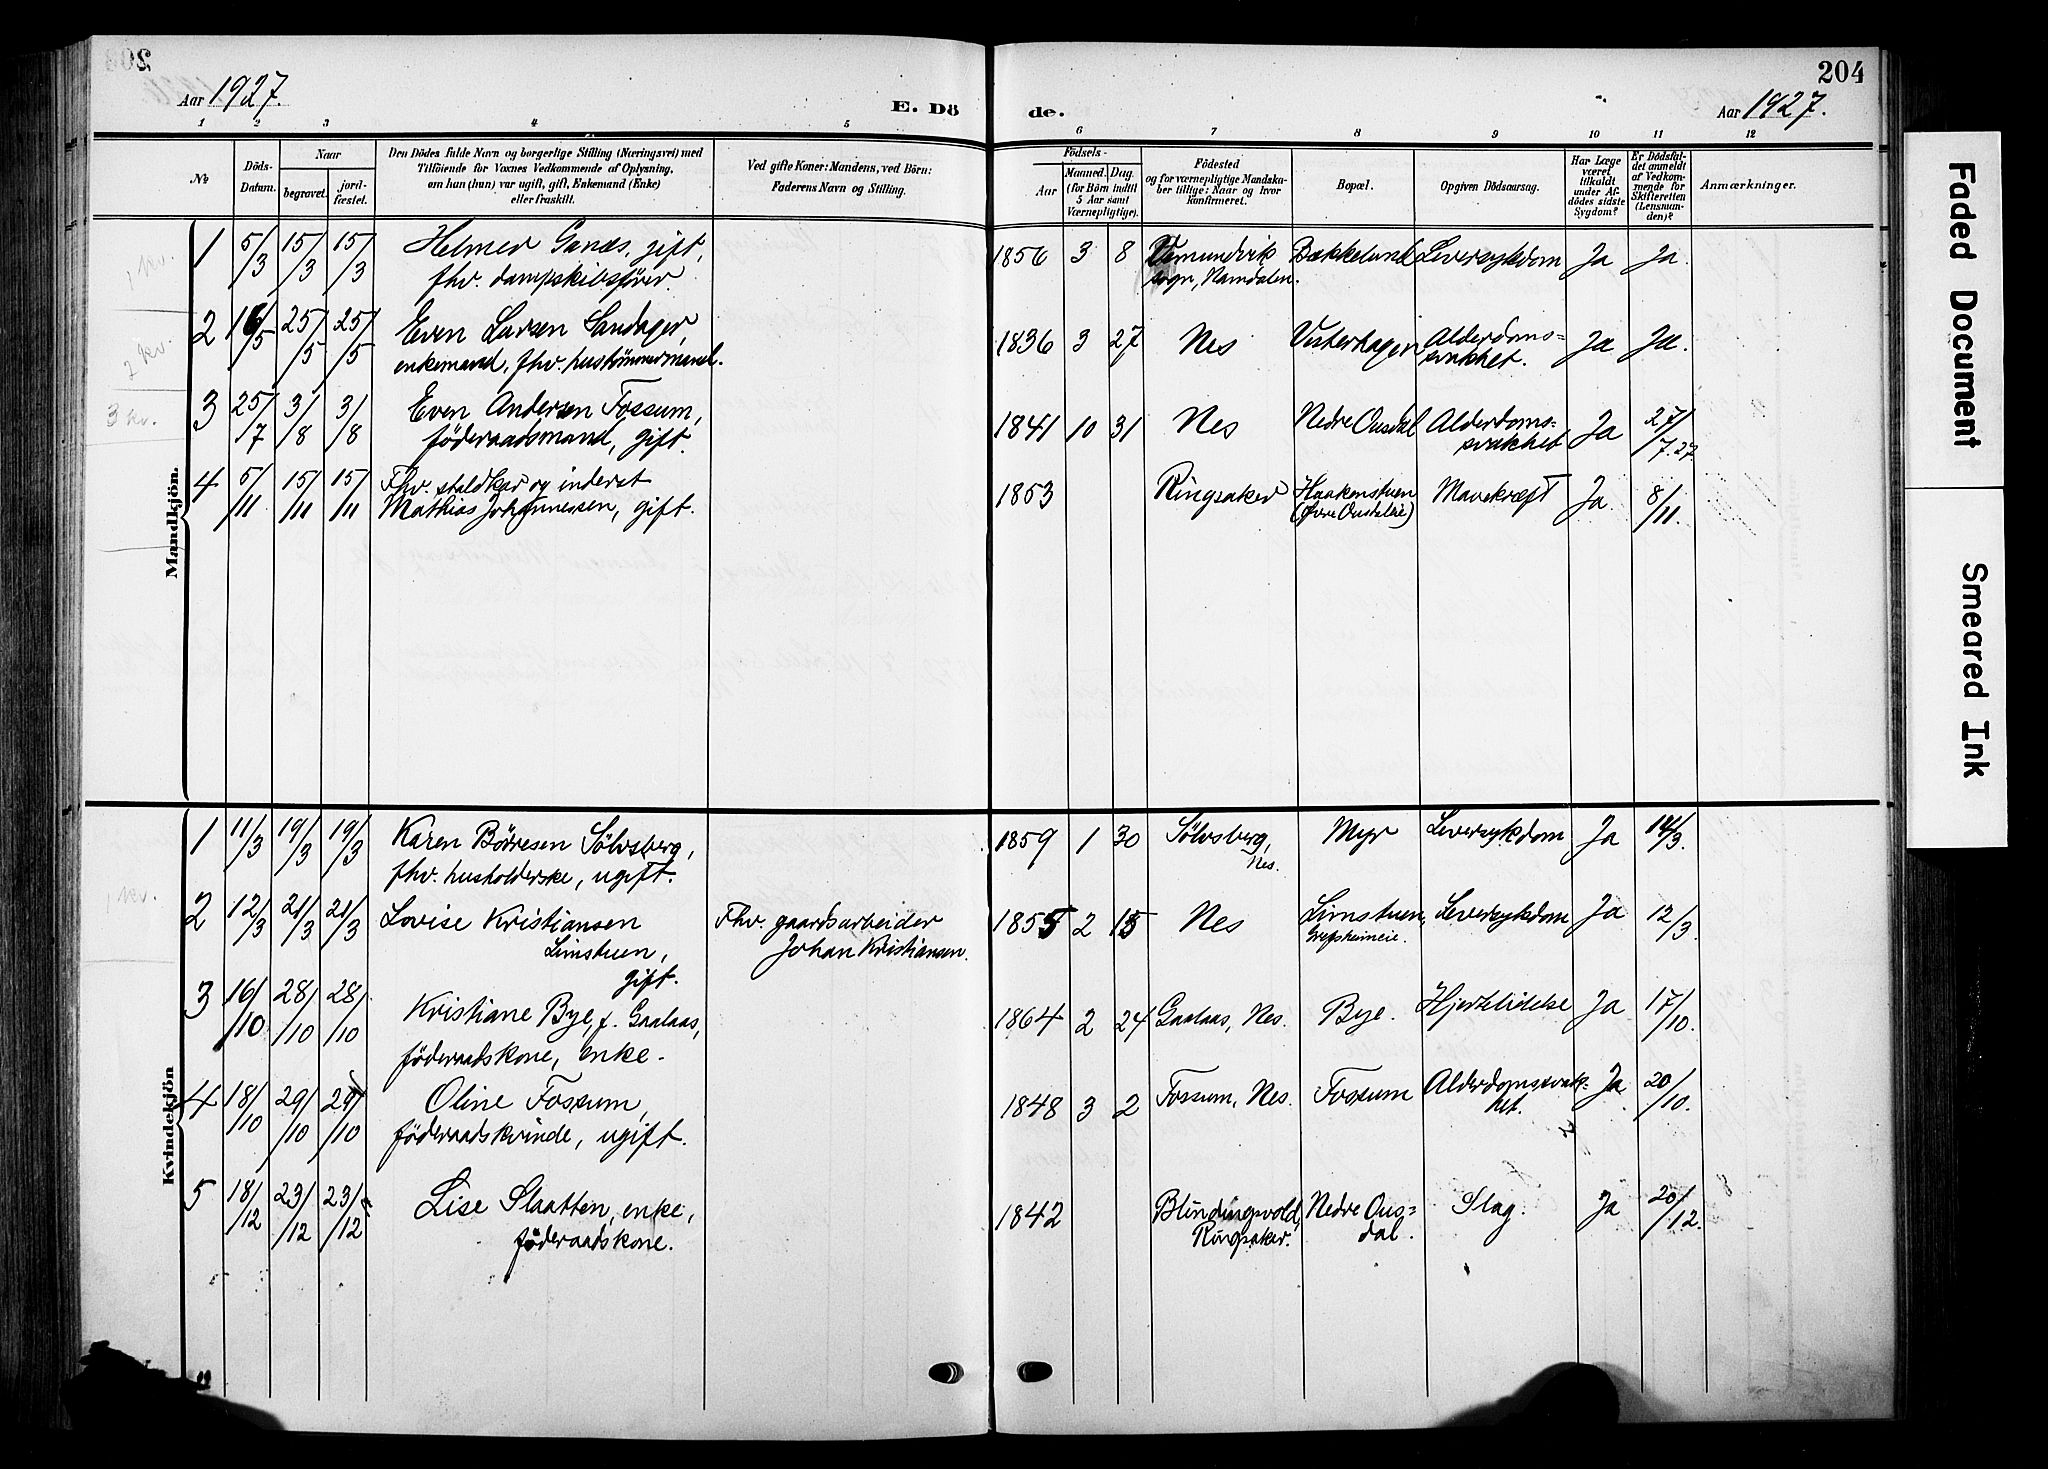 204
Aar 1927.
E. Dö
de.
Aar 1927.
1 2 3 4 5 6 7 8 9 10 11 12
No
Döds-
Datum.
Naar
begravet.
jord-
fæstet.
Den Dödes fulde Navn og borgerlige Stilling (Næringsvei) med
Tilföiende for Voxnes Vedkommende af Oplysning,
om hun (hun) var ugift, gift, Enkemand (Enke)
eller fraskilt.
Ved gifte Koner: Mandens, ved Börn:
Faderens Navn og Stilling.
Födsels-
Aar
Maaned. Dag.
(for Börn indtil
5 Aar samt
Værnepligtige).
Födested
og for værnepligtige Mandska-
ber tillige: Naar og hvor
konfirmeret.
Bopæl.
Opgiven Dödsaarsag.
Har Læge
været
tilkaldt
under Af-
dödes sidste
Sygdom?
Er Dödsfal-
det anmeldt
af Vedkom-
mende for
Skifteretten
(Lensman-
den)?
Anmærkninger.
Mandkjön.
1 5/3 15/3 15/3 Helmer Ganæs, gift, 1856 3 8 Vemundvik Bækkelund Leversykdom Ja Ja.
fhv. dampskibsfører. sogn, Namdalen.
2 16/5 25/5 25/5 Even Larsen Sandager, 1836 3 27 Nes Vesterhagen Alderdoms= Ja Ja.
enkemand, fhv. hustømmermand. svakhet.
3 25/7 3/8 3/8 Even Andersen Fossum, 1841 10 31 Nes Nedre Ousdal Alderdoms= Ja 27/7.27
föderaadsmand, gift. svakhet
4 5/11 15/11 15/11 Fhv. staldkar og inderst 1853 Ringsaker Haakenstuen Mavekræft Ja. 8/11.
Mathias Johannessen, gift. (Øvre Ousdaleie)
Kvindekjön
1 11/3 19/3 19/3 Karen Børresen Sölvsberg, 1859 1 30 Sölvsberg, Myr Leversykdom Ja 14/3.
fhv. husholderske, ugift. Nes.
2 12/3 21/3 21/3 Lovise Kristiansen Fhv. gaardsarbeider 1855 2 15 Nes Limstuen, Leversykdom Ja 12/3.
Limstuen, Johan Kristiansen. Grefsheimeie.
gift.
3 16/10 28/10 28/10 Kristiane Bye, f. Gaalaas, 1864 2 24 Gaalaas, Nes. Bye. Hjertelidelse Ja 17/10.
föderaadskone, enke.
4 18/10 29/10 29/10 Oline Fossum, 1848 3 2 Fossum, Nes. Fossum Alderdomssvak- Ja 20/10.
föderaadskvinde, ugift. het.
5 18/12 23/12 23/12 Lise Slaatten, enke, 1842 Blindingsvold, Nedre Ous= Slag. Ja 20/12.
föderaadskone. Ringsaker. dal.
1 kv.
2 kv.
3 kv.
1 kv.
Faded Document
Smeared Ink